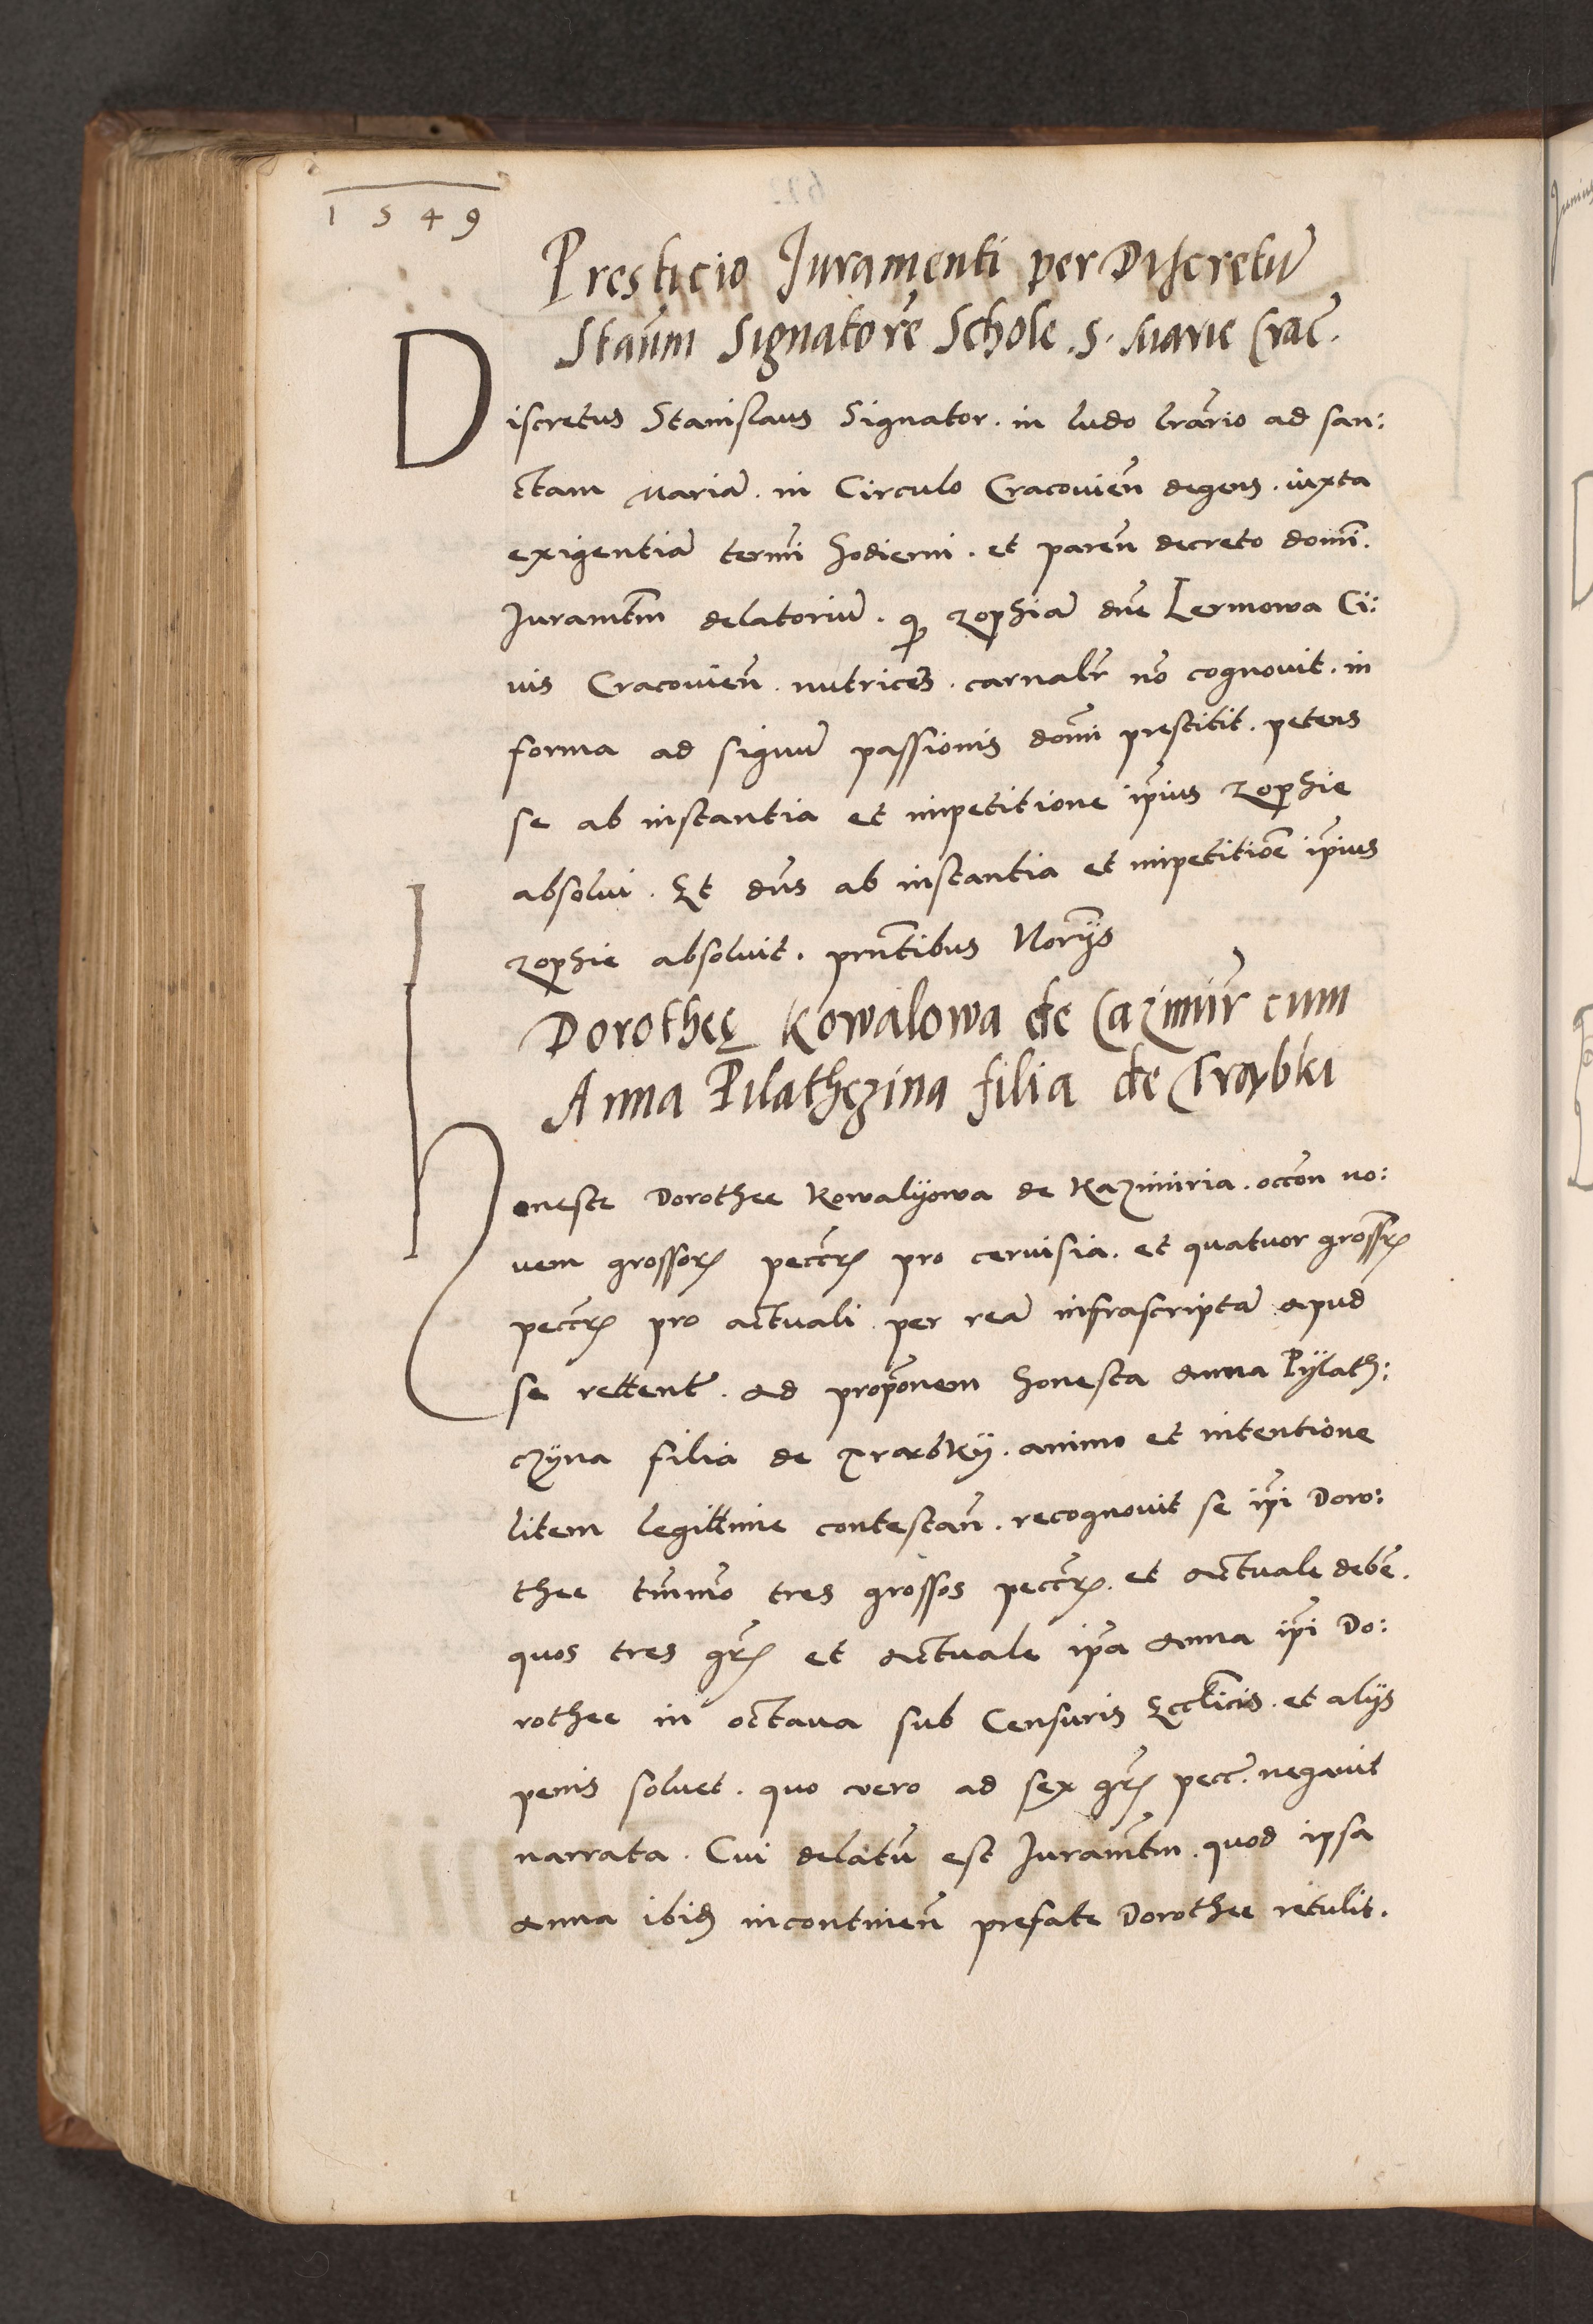 1549
Presticio Juramenti per Discretū
Staūm Signatorē Schole S. Marie Crac̄.
Discretus Stanislaus Signator. in ludo lrārio ad san:
ctam Mariā. in Circulo Cracovień degens. iuxta
exigentiā termī hodierni. et pareń decreto domī.
Juramtm̄ delatoriū. qꝫ zophiā dn̄e Lermowa Ci:
vis Cracovień. nutricē. carnalr̄ nō cognovit. in
forma ad signū passionis domī prestitit. petens
se ab instantia et impetitione ip̄ius zophie
absolvi. Et dn̄s ab instantia et impetitiōe ip̄ius
zophie absolvit. prn̄tibus Norijs
Dorotheę Kowalowa de Cazimir̄ cum
Anna Pilathczina filia de Trąbki
Honeste Dorothee Kowalyowa de Kazimiria. occōn no:
vem grossorꝝ peccr̄ꝝ pro cervisia. et quatuor grossrꝝ
peccr̄ꝝ pro actuali per reā infrascriptā apud
se rettent̄. ad propōnem honesta Anna Pylath:
czyna filia de Trabky. animo et intentione
litem legittime contestań. recognovit se ip̄i Doro:
thee tm̄mō tres grossos peccr̄ꝝ. et actuale debē.
quos tres gr̄ꝝ et actuale ip̄a Anna ip̄i Do:
rothee in octava sub Censuris Eccl̄icis. et alijs
penis solvet. quo vero ad sex gr̄ꝝ pecc̄. negavit
narrata. Cui delatū est Juramtm̄. quod ipsa
Anna ibidꝫ incontineń prefate Dorothee retulit.